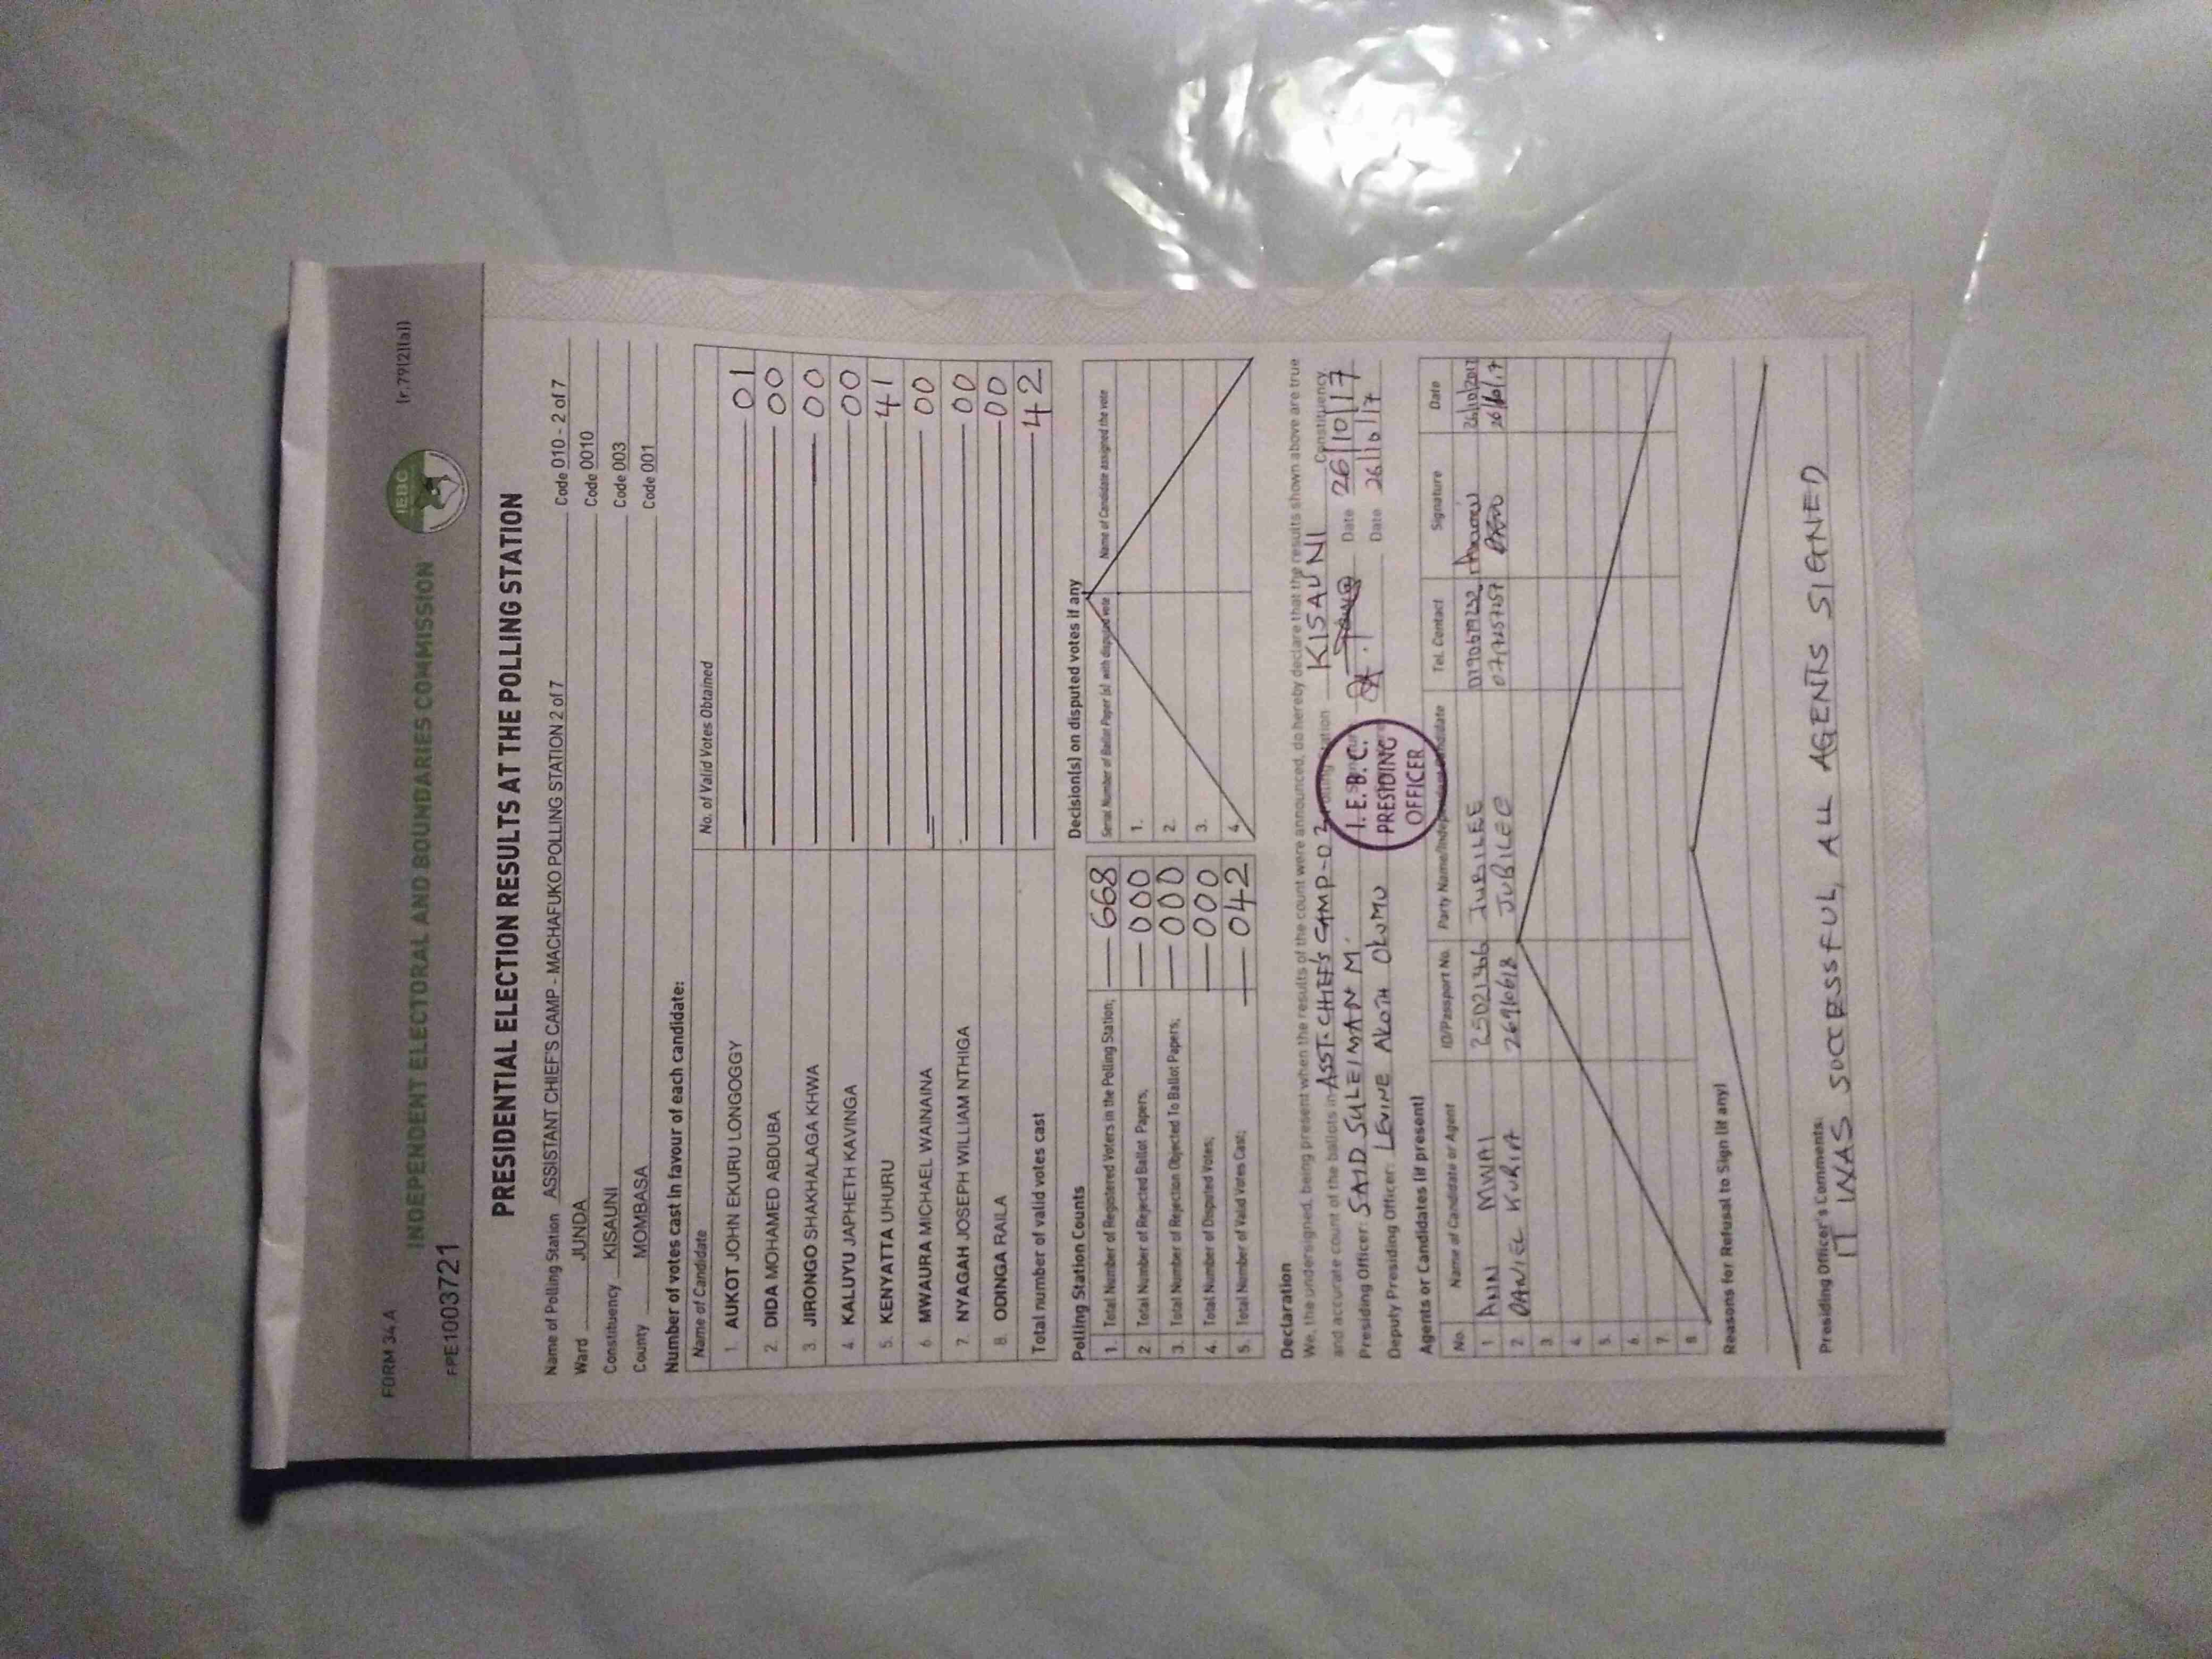 FORM 34 A
(r.79(2)(a))
IEBC
INDEPENDENT ELECTORAL AND BOUNDARIES COMMISSION
PRE1003721
PRESIDENTIAL ELECTION RESULTS AT THE POLLING STATION
Name of Polling Station ASSISTANT CHIEF'S CAMP - MACHAFUKO POLLING STATION 2 of 7 Code 010 - 2 of 7
Ward JUNDA Code 0010
Constituency KISAUNI Code 003
County MOMBASA Code 001
Number of votes cast in favour of each candidate:
Name of Candidate No. of Valid Votes Obtained
1. AUKOT JOHN EKURU LONGOGGY 01
2. DIDA MOHAMED ABDUBA 00
3. JIRONGO SHAKHALAGA KHWA 00
4. KALUYU JAPHETH KAVINGA 00
5. KENYATTA UHURU 41
6. MWAURA MICHAEL WAINAINA 00
7. NYAGAH JOSEPH WILLIAM NTHIGA 00
8. ODINGA RAILA 00
Total number of valid votes cast 42
Polling Station Counts
1. Total Number of Registered Voters in the Polling Station; 668
2. Total Number of Rejected Ballot Papers; 000
3. Total Number of Rejection Objected To Ballot Papers; 000
4. Total Number of Disputed Votes; 000
5. Total Number of Valid Votes Cast; 042
Decision(s) on disputed votes if any
Serial Number of Ballot Paper (s) with disputed vote Name of Candidate assigned the vote
1.
2.
3.
4.
Declaration
We, the undersigned, being present when the results of the count were announced, do hereby declare that the results shown above are true
and accurate count of the ballots in ASST. CHIEF'S CAMP-02 KISAUNI Constituency
Presiding Officer: SAID SULEIMAN M. Date 26/10/17
Deputy Presiding Officer: LEVINE AKOTH OLUMU Date 26/10/17
I.E.B.C.
PRESIDING
OFFICER
Agents or Candidates (if present)
No. Name of Candidate or Agent ID/Passport No. Party Name/Independent Candidate Tel. Contact Signature Date
1 ANN MWAI JUBILEE 26/10/2017
2. DANIEL KURIA JUBILEE 26/10/17
3.
4.
5.
6.
7.
8.
Reasons for Refusal to Sign (if any)
Presiding Officer's Comments:
IT WAS SUCCESSFUL, ALL AGENTS SIGNED